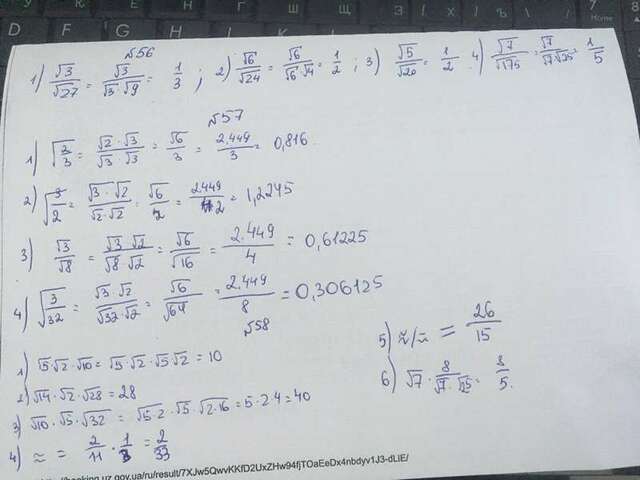 №56
1) √3/√27 = √3/√3·√9 = 1/3 ; 2) √6/√24 = √6/√6·√4 = 1/2 ; 3) √5/√20 = 1/2 4) √7/√175 = √7/√7·√25 = 1/5
№57
1) √2/3 = √2·√3/√3·√3 = √6/3 = 2,449/3 = 0,816
2) √3/2 = √3·√2/√2·√2 = √6/2 = 2,449/2 = 1,2245
3) √3/√8 = √3·√2/√8·√2 = √6/√16 = 2,449/4 = 0,61225
4) √3/32 = √3·√2/√32·√2 = √6/√64 = 2,449/8 = 0,306125
№58
1) √5·√2·√10 = √5·√2·√5·√2 = 10
2) √14·√2·√28 = 28
3) √10·√5·√32 = √5·2·√5·√2·16 = 5·2·4 = 40
4) ≈ = 2/11·1/3 = 2/33
5) ≈/≈ = 26/15
6) √7·8/√7·√25 = 8/5.
http://booking.uz.gov.ua/ru/result/7XJw5QwvKKfD2UxZHw94fjTOaEeDx4nbdyv1J3-dLIE/